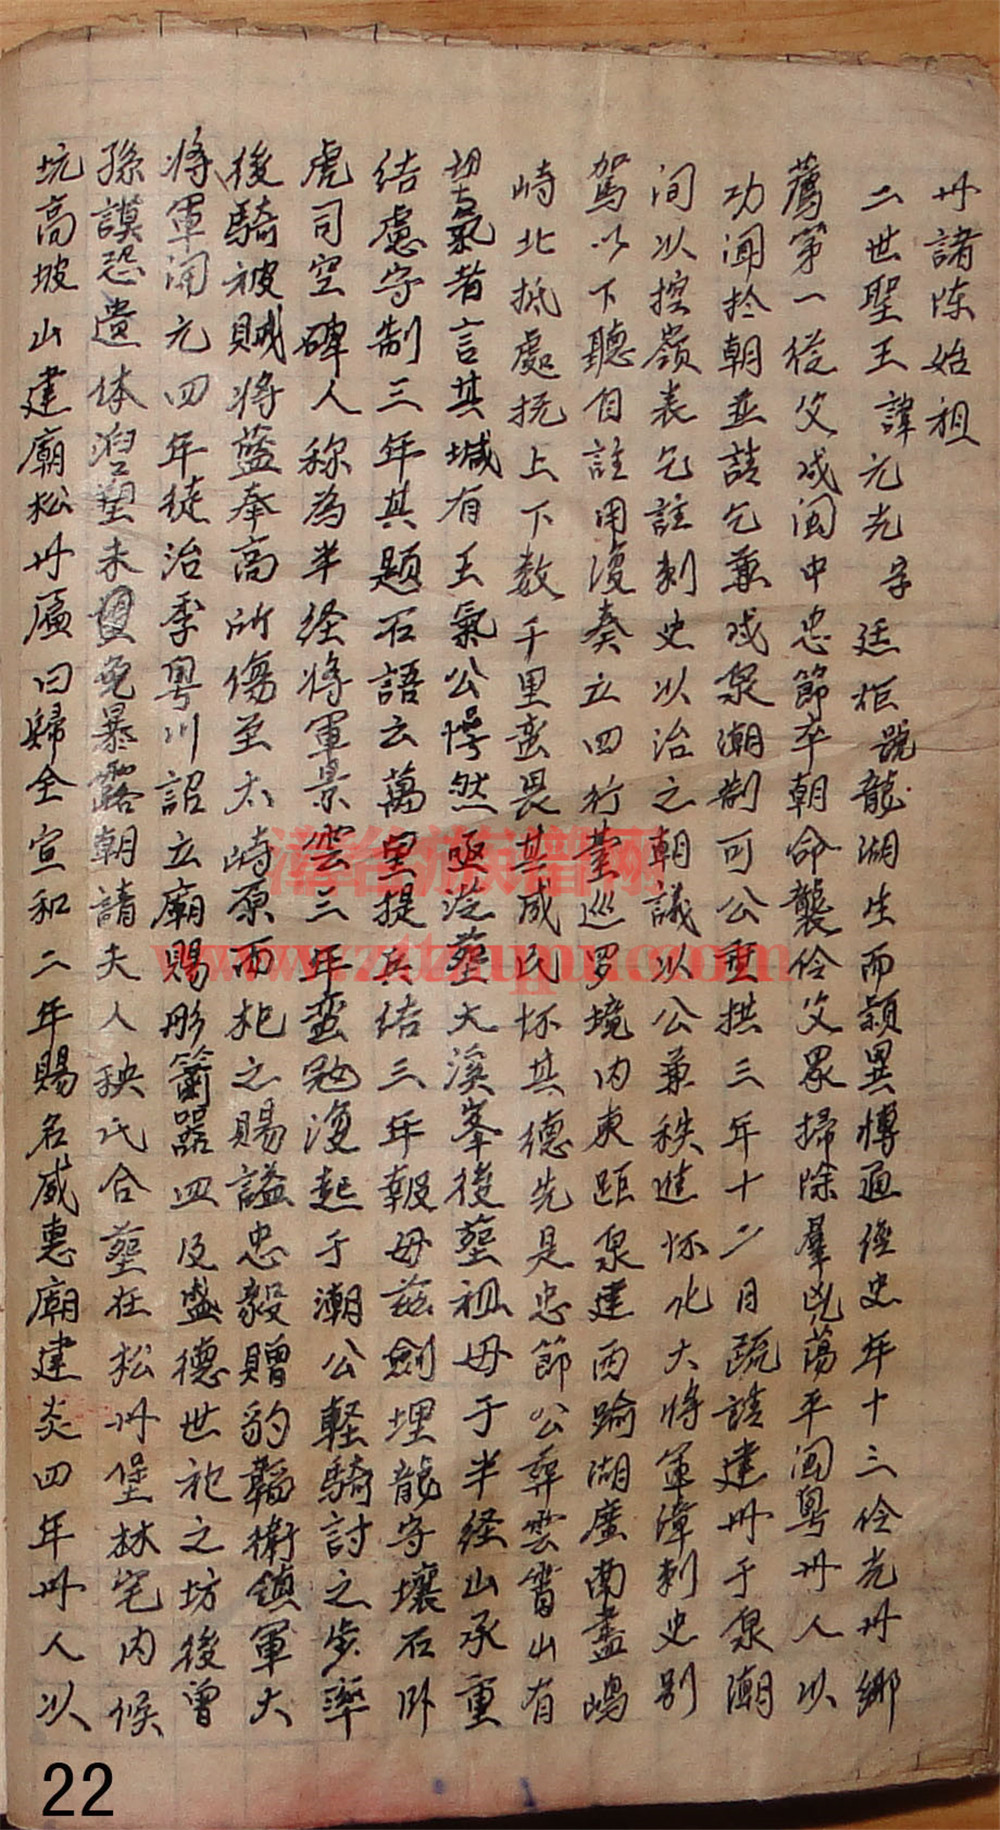 州諸陈始祖
二世聖王諱元光字廷柜號龍湖生而颖異博通经史年十三領光州鄉
薦第一從父戍闽中忠節卒朝命襲領父眾掃除羣凶蕩平闽粤州人以
功闻扵朝並請乞兼戍泉潮制可公垂拱三年十二月疏請建州于泉潮
间以控嶺表乞註刺史以治之朝議以公兼秩進怀化大將軍漳刺史别
駕以下聽自註用復奏立四行臺巡罗境内東距泉建西踰湖廣南盡嶋
崎北抵處抚上下数千里蛮畏其威民怀其德先是忠節公葬雲霄山有
望氣者言其堿有王氣公愕然亟迁塟大溪峯後塟祖母于半经山承重
结慮守制三年其题石語云萬里提兵结三年報母兹劍埋龍守壤石卧
虎司空碑人称為半经将軍景雲三年蛮寇復起于潮公軽騎討之步率
後騎被賊将藍奉高所傷至大崎原而祀之賜謚忠毅贈豹韜衛鎮軍大
将軍闹元四年徒治季粤川詔立廟賜彤簫器皿及盛德世祀之坊後曽
孫謨恐遗体泥塑未免暴露朝請夫人秧氏合塟在松州堡林宅内候
坑高坡山建廟松州匾曰歸全宣和二年賜名威惠廟建炎四年州人以
22
漳台族譜网
www.ztzupu.com